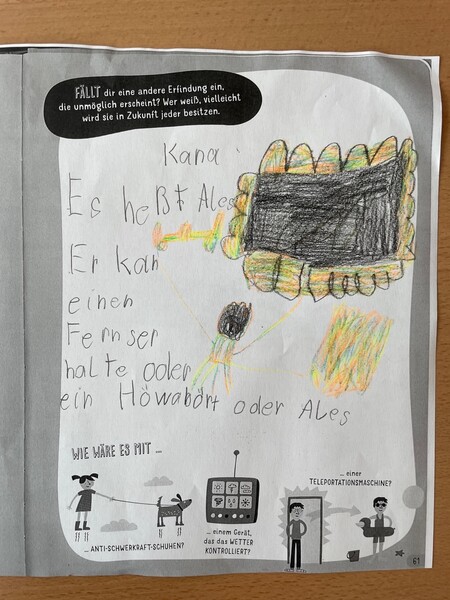 FÄLLT dir eine andere Erfindung ein,
die unmöglich erscheint? Wer weiß, vielleicht
wird sie in Zukunft jeder besitzen.
Kana
Es heßt Ales
Er kan
einen
Fernser
halte oder
ein Höwabört oder Ales
WIE WÄRE ES MIT ...
... ANTI-SCHWERKRAFT-SCHUHEN?
... einem Gerät,
das das WETTER
KONTROLLIERT?
... einer
TELEPORTATIONSMASCHINE?
61